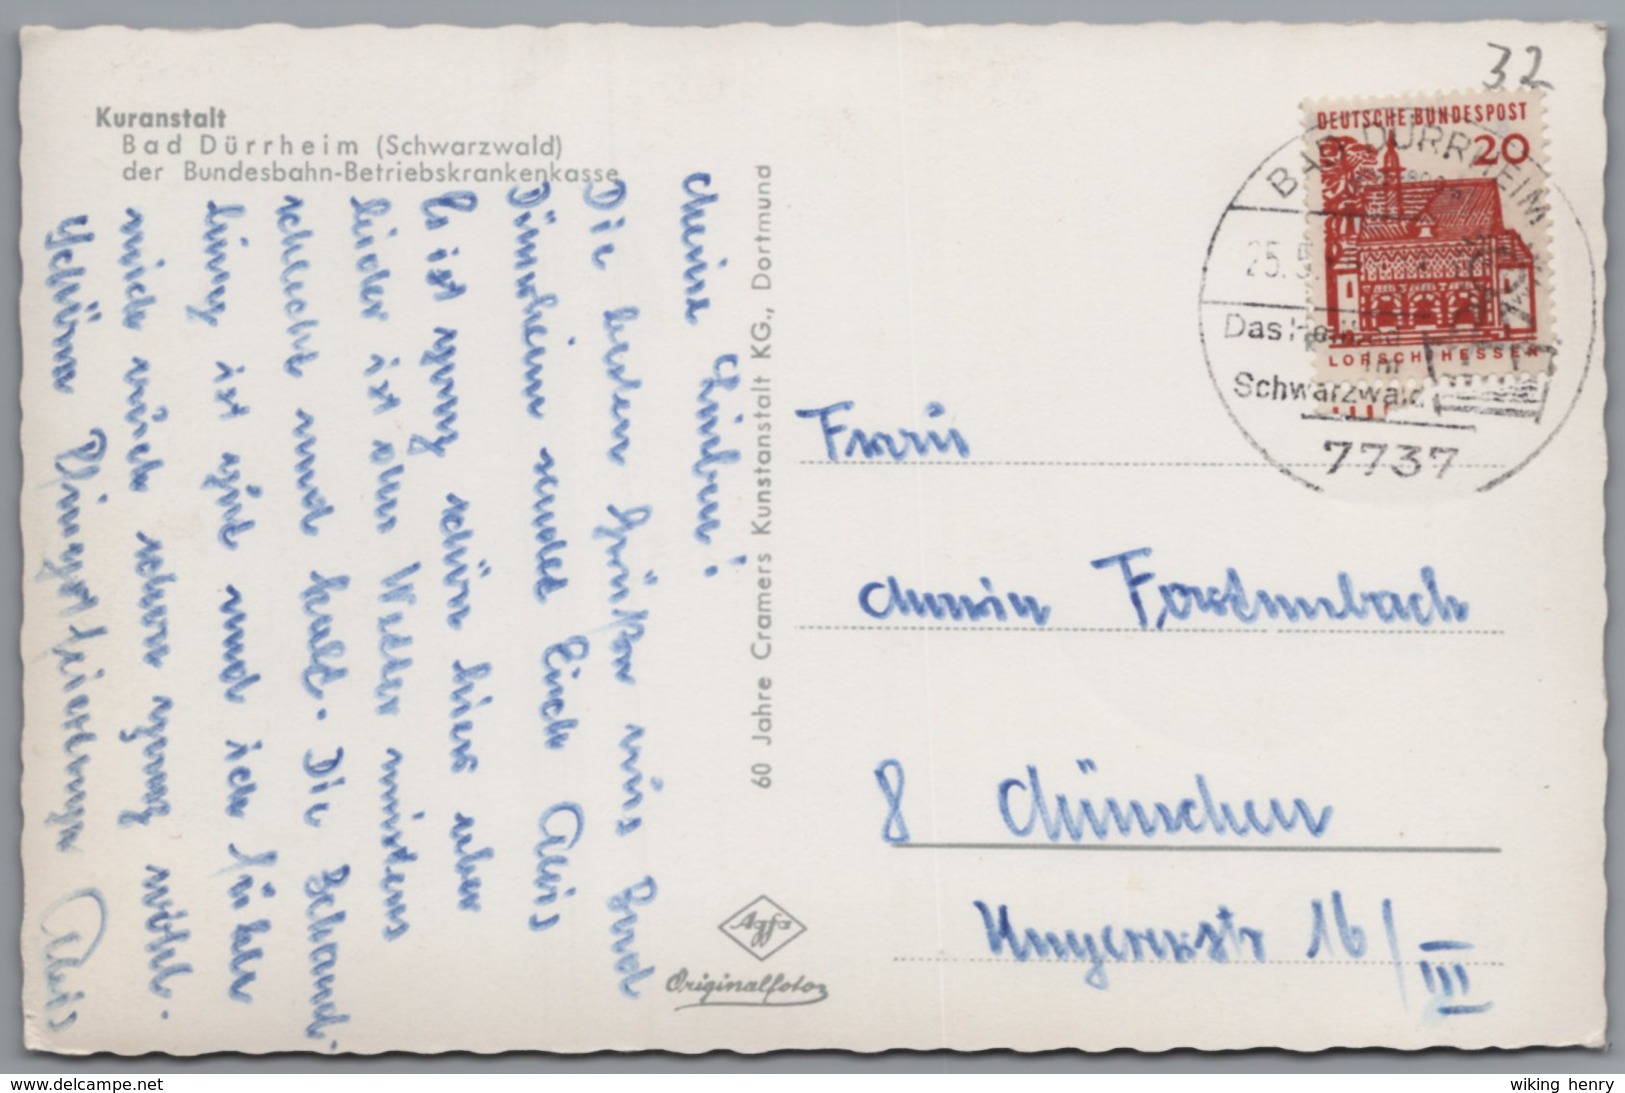 Kuranstalt
Bad Dürrheim (Schwarzwald)
der Bundesbahn-Betriebskrankenkasse
Meine Lieben!
Die besten Grüße aus Bad
Dürrheim sendet Euch Alois
Es ist ganz schön hier aber
leider ist das Wetter
schlecht und kalt. Die Behand-
lung ist gut und ich fühle
mich auch schon ganz wohl.
Schöne Pfingstfeiertage Alois
60 Jahre Cramers Kunstanstalt KG., Dortmund
Agfa
Originalfoto
32
DEUTSCHE BUNDESPOST
20
LORSCH/HESSEN
BAD DÜRRHEIM
25.5.
Das
Schwarzwald
7737
Frau
Maria
8 München
Ungererstr 16/III
www.delcampe.net
wiking henry